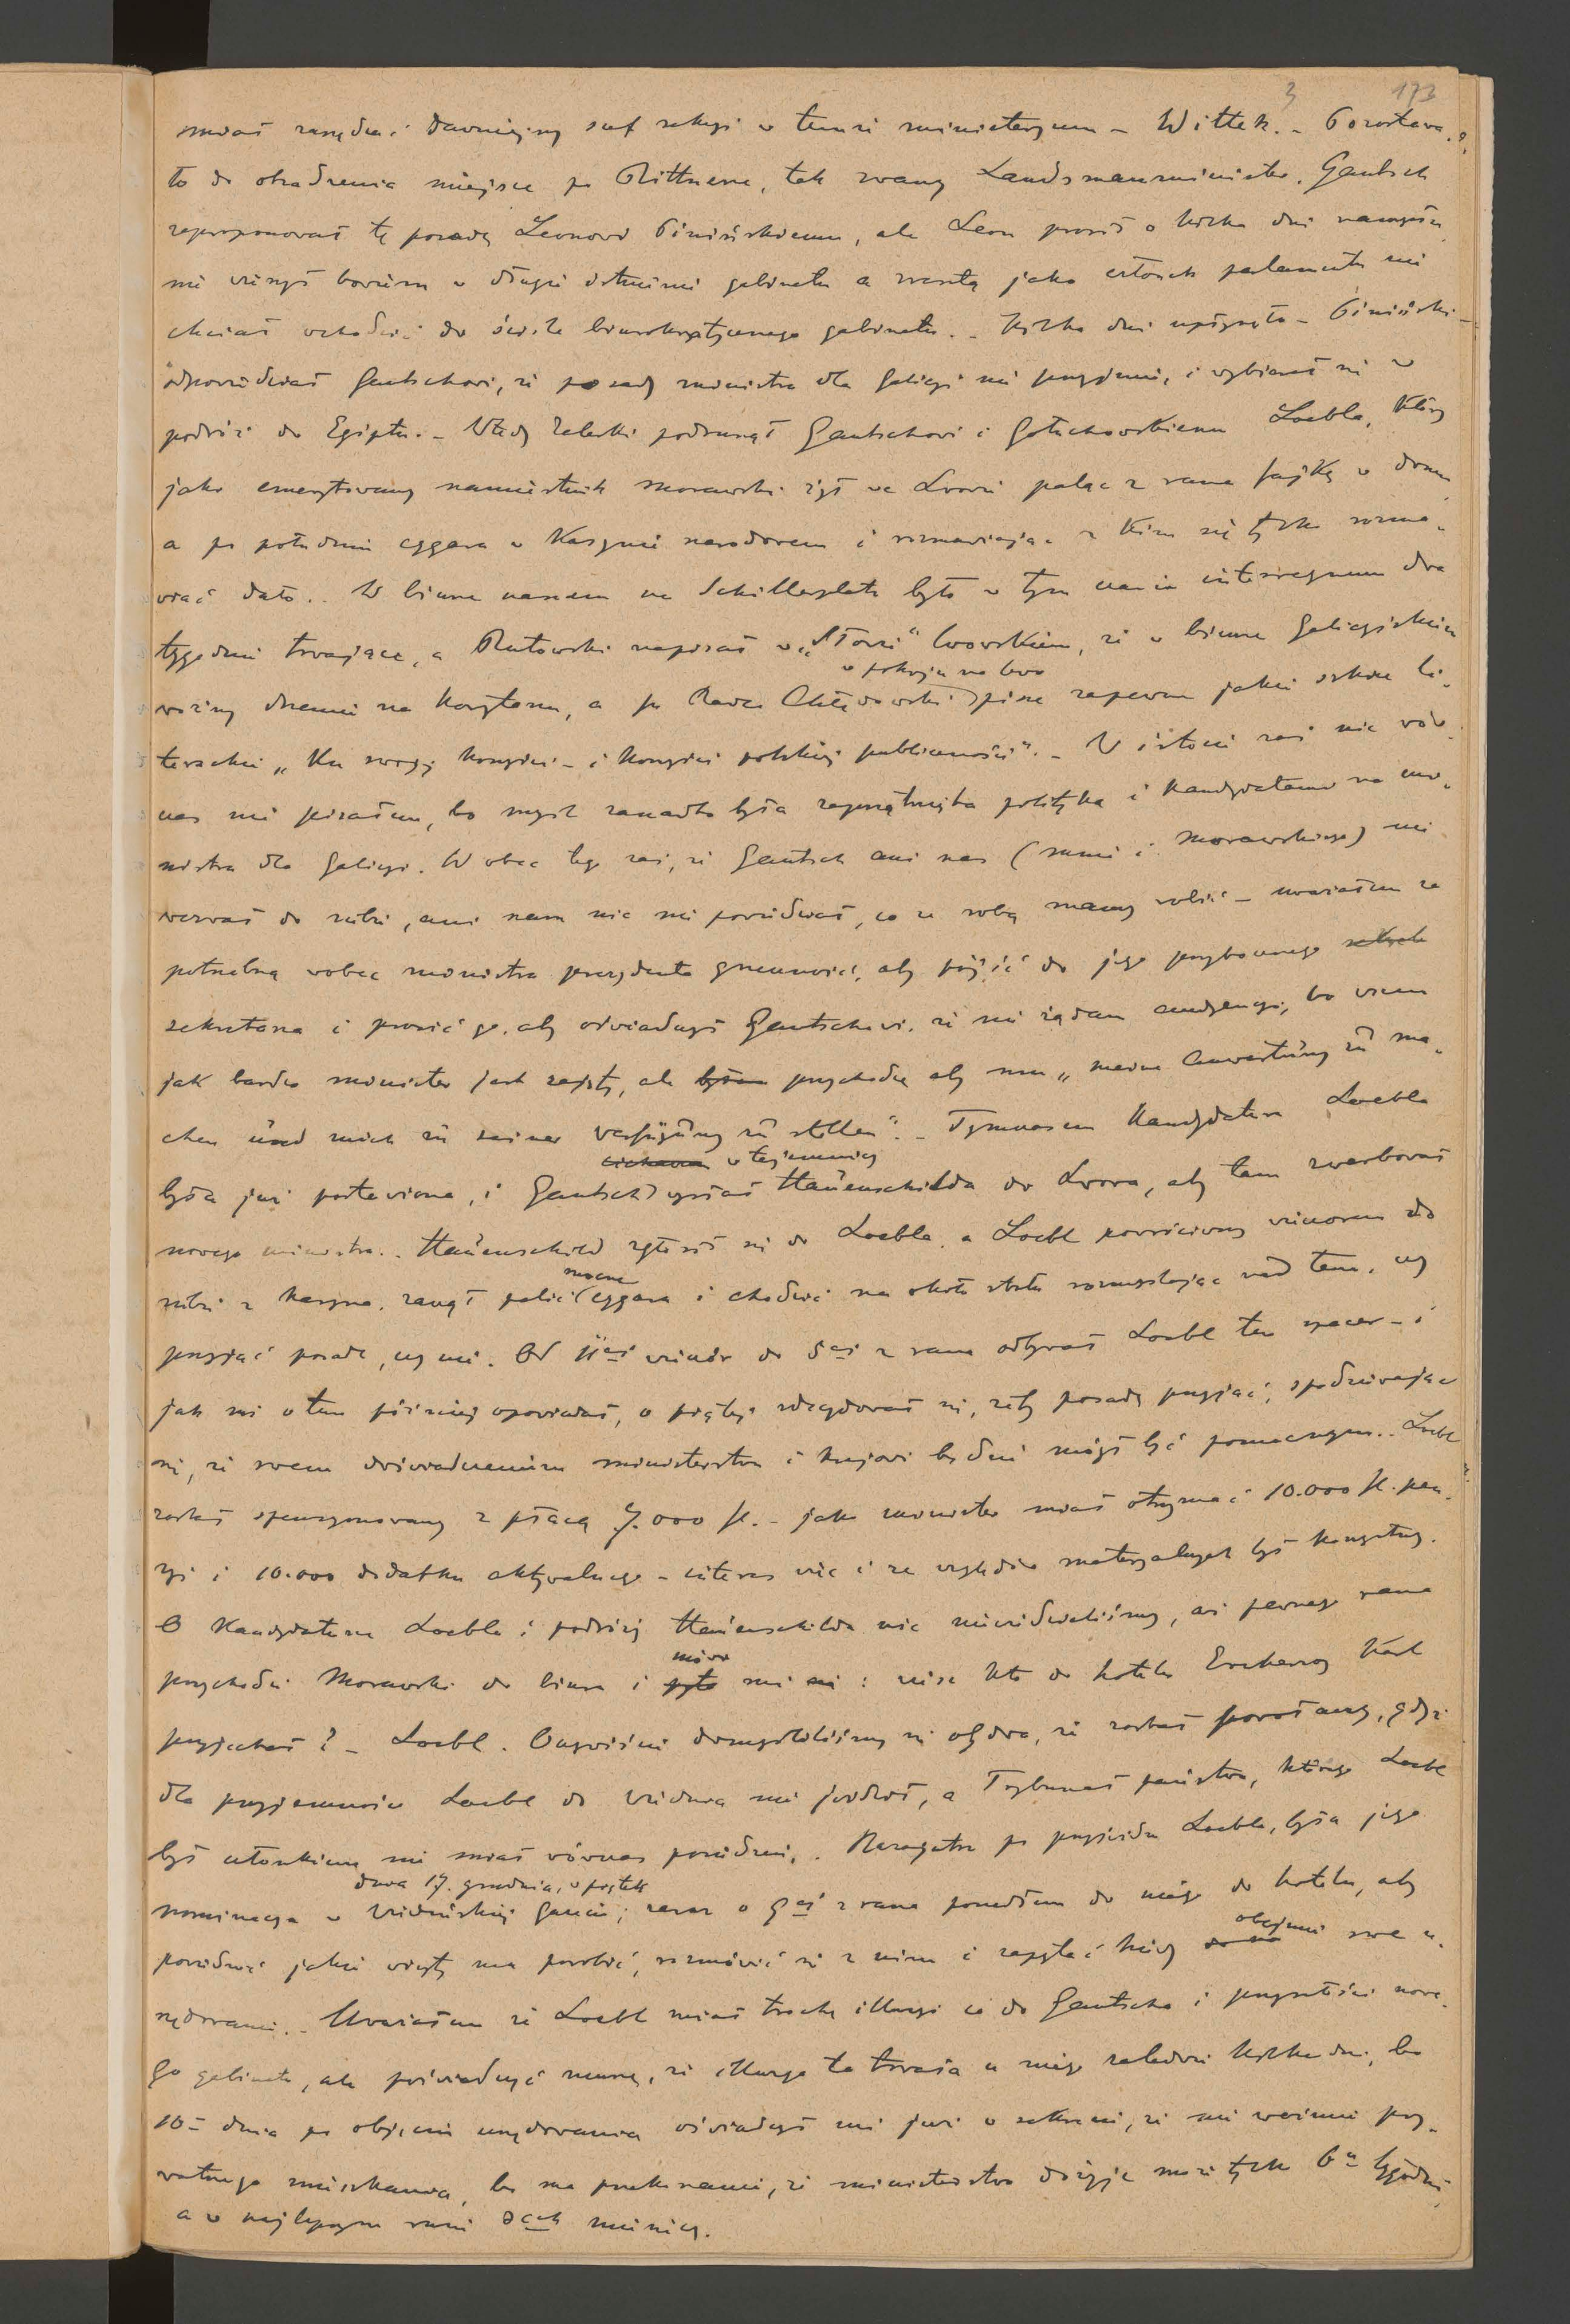 3 173
miał zarządzać dawniejszy szef sekcyi w temże ministeryum – Wittek. – Pozostawa-
ło do obsadzenia miejsce po Rittnerze, tak zwany Landsmannminister. Gautsch
zaproponował tę posadę Leonowi Pinińskiemu, ale Leon prosił o kilka dni namysłu
nie wierzył bowiem w długie istnienie gabinetu a zresztą jako członek parlamentu nie
chciał wchodzić do ściśle biurokratycznego gabinetu. – Kilka dni upłynęło – Piniński –
odpowiedział Gautschowi, że posady ministra dla Galicyi nie przyjmie, i wybierał się w
podróż do Egiptu. – Wtedy Zaleski podsunął Gautschowi i Gołuchowskiemu Loebla, który
jako emerytowany namiestnik morawski żył we Lwowie paląc z rana fajkę w domu
a po południu cygara w Kasynie narodowem i rozmawiając z kim się tylko rozma-
wiać dało. – W biurze naszem na Schillerplatz było w tym czasie interregnum dwa
tygodnie trwające, a Rutowski napisał w „Słowie" lwowskiem, że w biurze Galicyjskiem
woźny drzemie na korytarzu, a p. Radca Chłędowski w pokoju na lewo pisze zapewne jakiś szkic li-
teracki „Ku swojej korzyści – i korzyści polskiej publiczności". – W istocie zaś nic wów-
czas nie pisałem, bo myśl zanadto była zaprzątnięta polityką i kandydatami na mi-
nistra dla Galicyi. Wobec tego zaś, że Gautsch ani nas (mnie i Morawskiego) nie
wezwał do siebie, ani nam nic nie powiedział, co ze sobą mamy robić – uważałem za
potrzebną wobec ministra prezydenta grzeczność, aby pójść do jego przybocznego
sekretarza i prosić go, aby oświadczył Gautschowi, że nie żądam audyencyi, bo wiem
jak bardzo minister jest zajęty, ale przychodzę aby mu „meine Aufwartung zu ma-
chen und mich zu seiner Verfügung zu stellen". – Tymczasem kandydatura Loebla
była już postawiona, i Gautsch w tajemnicy wysłał Hauenschilda do Lwowa, aby tam zwerbował
nowego ministra. – Hauenschild zgłosił się do Loebla, a Loebl powróciwszy wieczorem do
siebie z kasyna, zaczął palić mocne cygara i chodzić na około stołu rozmyślając nad tem, czy
przyjąć posadę, czy nie. Od 11ej wieczór do 5ej z rana odbywał Loebl ten spacer – i
jak mi o tem później opowiadał, o piątej zdecydował się, żeby posadę przyjąć, spodziewając
się, że swem doświadczeniem ministerstwu i krajowi będzie mógł być pomocnym. – Loebl
został spensyonowany z płacą 7.000 fl. – jako minister miał otrzymać 10.000 fl. pen-
syi i 10.000 dodatku aktywalnego – interes więc i ze względów materyalnych był korzystny.
O kandydaturze Loebla i podróży Hauenschilda nic nie wiedzieliśmy, aż pewnego rana
przychodzi Morawski do biura i mówi mi: wiesz kto do hotelu Erzherzog Karl
przyjechał? – Loebl. Oczywiście domyśliliśmy się obydwa, że został powołany, gdyż
dla przyjemności Loebl do Wiednia nie jeździł, a Trybunał państwa, którego Loebl
był członkiem nie miał wówczas posiedzeń. – Nazajutrz po przyjeździe Loebla, była jego
nominacya w Wiedeńskiej Gazecie; dnia 17. grudnia, w piątek zaraz o 9ej z rana poszedłem do niego do hotelu, aby
powiedzieć jakie wizyty ma porobić, rozmówić się z nim i zapytać kiedy obejmie swe u-
rzędowanie. – Uważałem że Loebl miał trochę illuzyi co do Gautscha i przyszłości nowe-
go gabinetu, ale poświadczyć muszę, że illuzya ta trwała u niego zaledwie kilka dni, bo
10– dnia po objęciu urzędowania oświadczył mi już w sekrecie, że nie weźmie pry-
watnego mieszkania, bo ma przekonanie, że ministerstwo dożyje może tylko 6u tygodni,
a w najlepszym razie 3ech miesięcy.